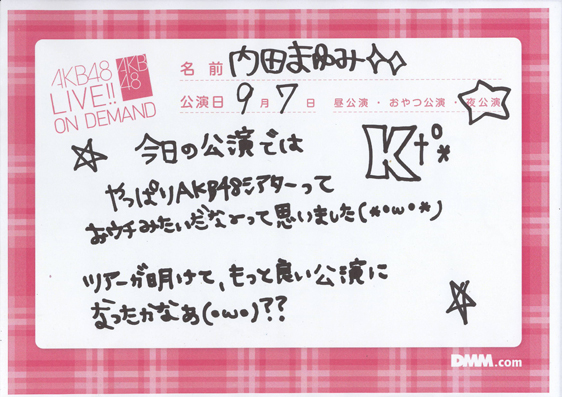 AKB48
LIVE!!
ON DEMAND
AKB
48
名前 内田まゆみ
公演日 9月7日 昼公演・おやつ公演・夜公演
今日の公演では
K
やっぱりAKB48シアターって
おウチみたいだなーって思いました(*•ω•*)
ツアーが明けて、もっと良い公演に
なったかなぁ(•ω•)??
DMM.com